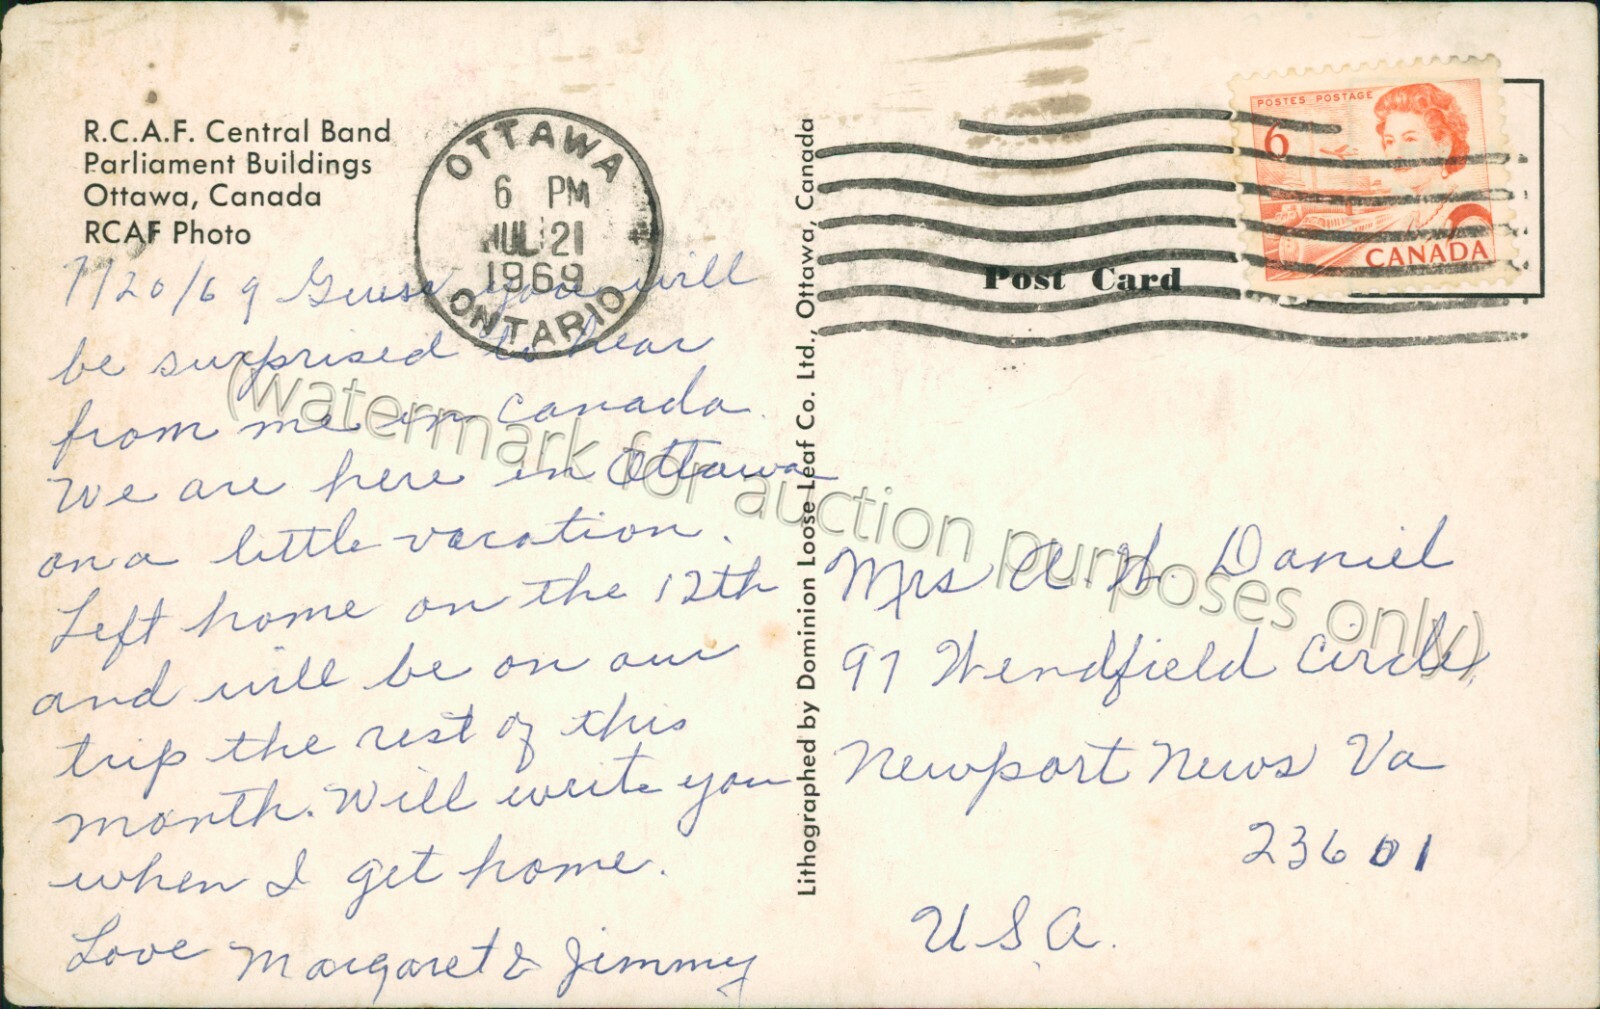 R.C.A.F. Central Band
Parliament Buildings
Ottawa, Canada
RCAF Photo
OTTAWA
6 PM
JUL 21
1969
ONTARIO
7/20/69 Guess you will
be surprised to hear
from me in Canada.
We are here in Ottawa
on a little vacation.
Left home on the 12th
and will be on our
trip the rest of this
month. Will write you
when I get home.
Love Margaret & Jimmy
Lithographed by Dominion Loose Leaf Co. Ltd., Ottawa, Canada
POSTES POSTAGE
6
CANADA
Post Card
Mrs A. W. Daniel
97 Wendfield Circle,
Newport News Va
23601
U.S.A.
(watermark for auction purposes only)